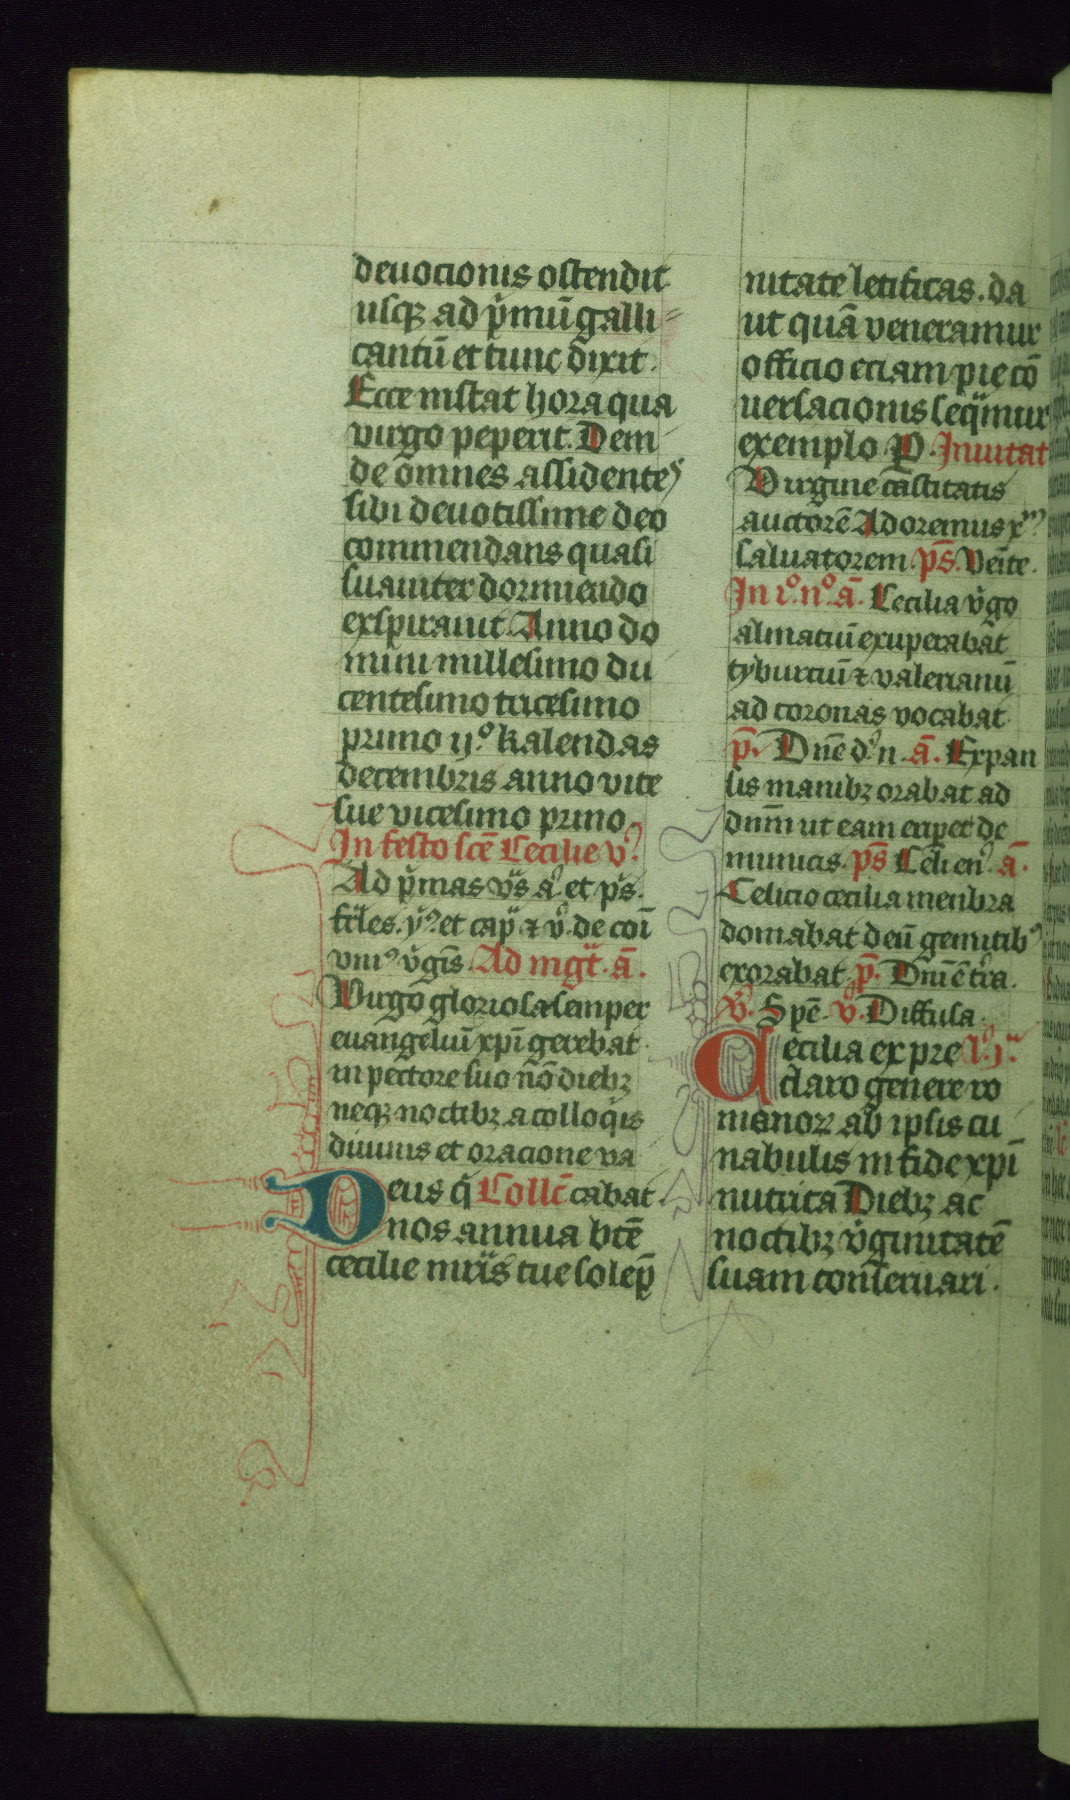 deuocionis ostendit
usq₃ ad p̍mū galli
cantū et tunc dixit.
Ecce instat hora qua
uirgo peperit. Dein
de omnes assidentes
sibi deuotissime deo
commendans quasi
suauiter dormiendo
exspirauit. Anno do
mini millesimo du
centesimo tricesimo
primo ijº kalendas
decembris anno vite
sue vicesimo primo
In festo scē Cecilie vꝰ
Ad p̍mas vs̄ a et ps̄.
et cap̄ ⁊ v̊ de coī
vniꝰ v̍gīs. Ad mgt̄. ā.
Virgo gloriosa semper
euangeliū xpī gerebat
in pectore suo nō dieb₃
neq₃ noctib₃ a colloq̍is
diuinis et oracione va
Deus q̍ Coll̄c cabat.
nos annua btē
cecilie mr̄is tue solep̄
nitate letificas. da
ut quā veneramur
officio eciam pie cō
uersacionis seq̍mur
exemplo P. Inuitat
Virgine castitatis
auctorē Adoremus xᵐ
saluatorem. ps̄. Venīte.
In iº. nº. ā. Cecilia v̍go
almaciū exuperabat
tyburciū ⁊ valerianū
ad coronas vocabat
p̄. Dn̄e dꝰ n. ā. Expan
sis manib₃ orabat ad
dnm̄ ut eam eriperet de
inimicis. ps̄ Celi enꝰ. ā.
Celicio cecilia menbra
domabat deū gemitibꝰ
exorabat. p̄. Dnī ē t̍ra.
v̊. Spē. v̊. Diffusa.
Cecilia ex pre lº. jᵃ
claro genere ro
manoꝝ ab ipsis cu
nabulis in fide xpī
nutrita Dieb₃ ac
noctib₃ v̍ginitatē
suam conseruari.